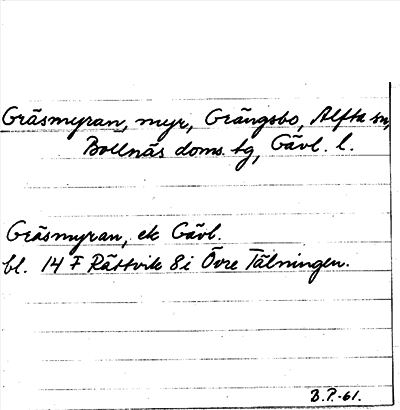 Gräsmyran, myr, Grängsbo, Alfta sn,
Bollnäs doms. tg, Gävl. l.
Gräsmyran, ek Gävl.
bl. 14 F Rättvik 8 i Övre Tälningen.
B.P.-61.